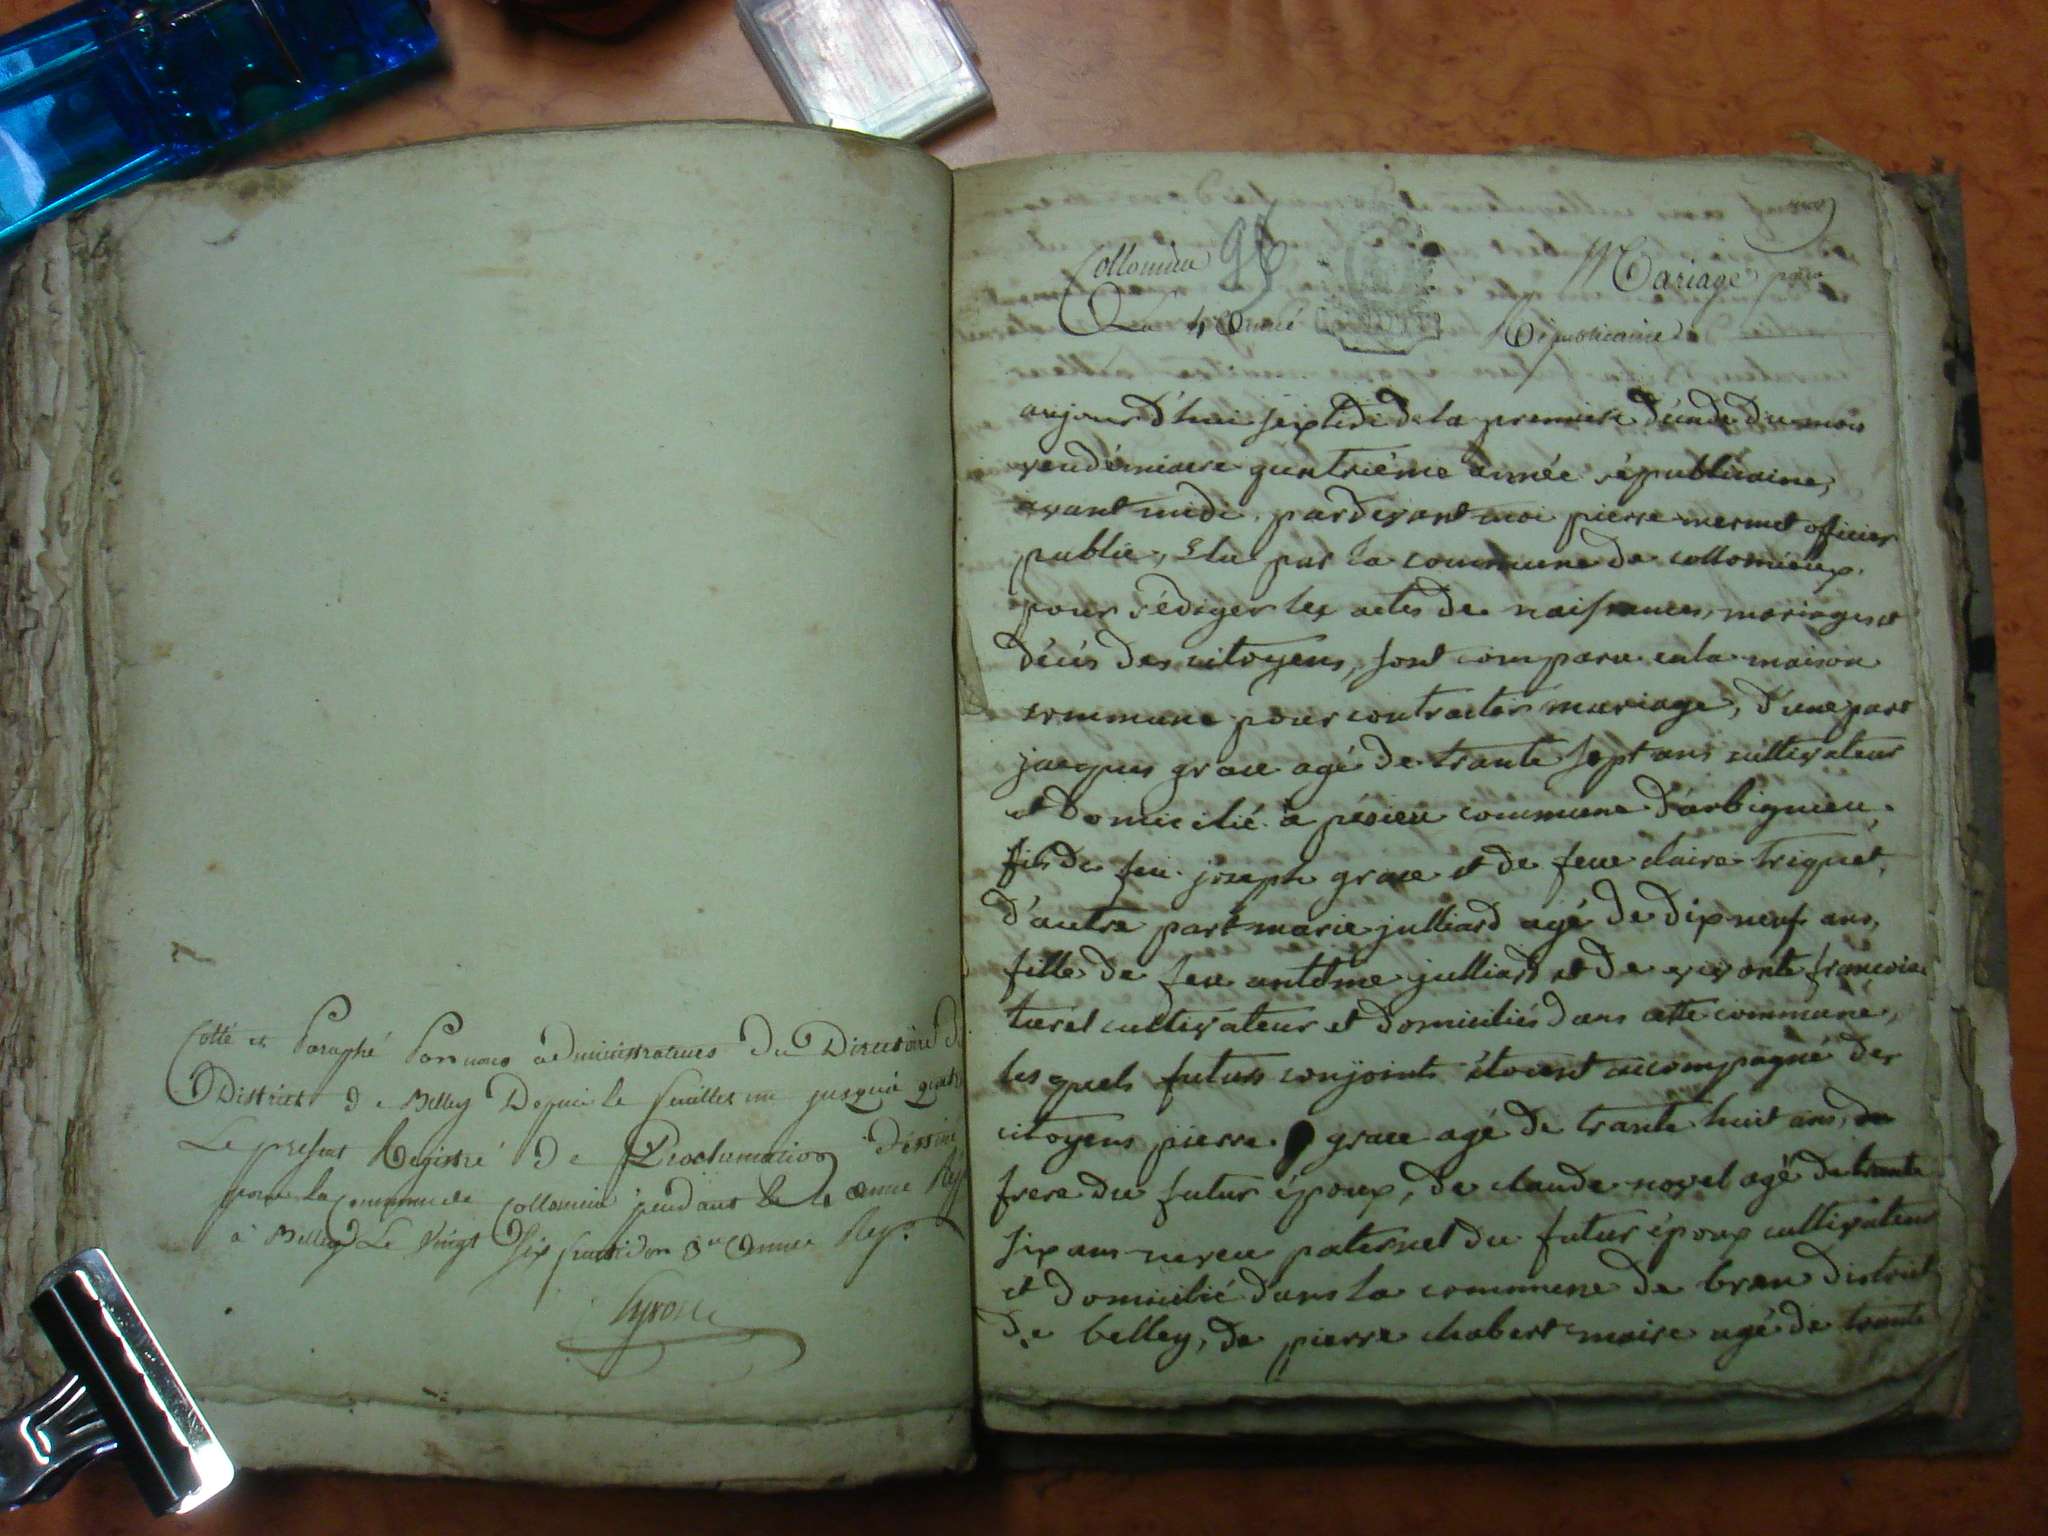 Cotté et Paraphé Par nous administrateurs Du Directoire d
District de Belley Depuis le feuillet un jusqu'a
Le present Registre De Proclamation Dessiné
pour la commune de Collomieu pendant le 4 année Rep
à Belley Le Vingt Six fructidor 3me année Rep.
Collomieu 95 Mariage pour
La 4 Année Républicaine
aujourd'hui septidi de la premiere décade du mois
vendémiaire quatriéme année républicaine,
avant midi, pardevant moi pierre mermet officier
public, élu par la commune de collomieux
pour rédiger les actes de naissances, mariages et
décès des citoyens, sont comparu en la maison
commune pour contracter mariage, d'une part
jacques grace agé de trante sept ans cultivateur
et domicilié à pésieu commune d'arbignieu,
fils de feu joseph grace et de feue claire triquet,
d'autre part marie julliard agé de dix neuf ans,
fille de feu antelme julliard et de vivante francoise
cultivateur et domiciliés dans cette commune,
les quels futurs conjoints étoient accompagné des
citoyens pierre grace agé de trante huit ans,
frere du futur époux, de claude novel agé de trante
six ans neveu paternel du futur époux cultivateur
et domicilié dans la commune de bren district
de belley, de pierre chabert maire agé de trante